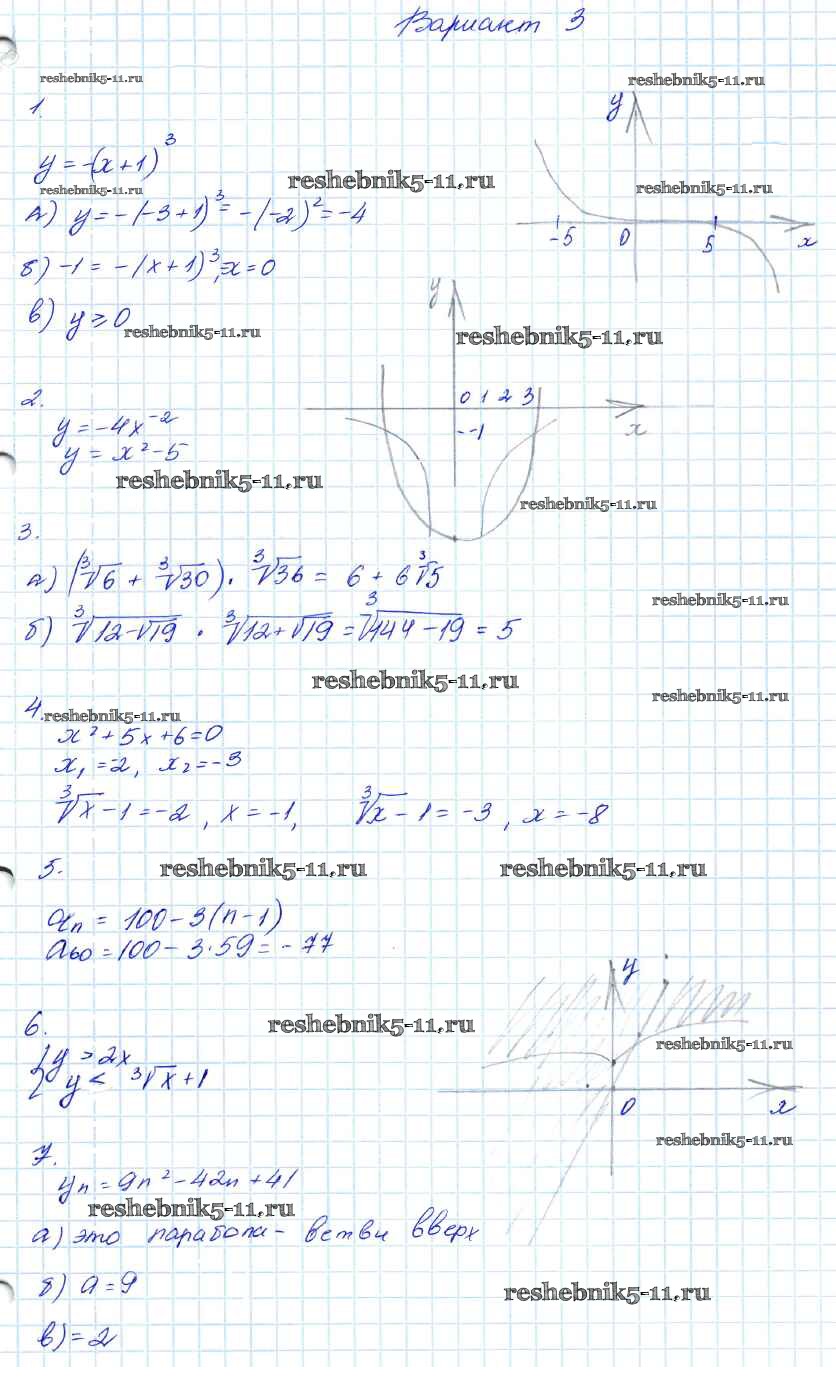 Вариант 3
reshebnik5-11.ru
reshebnik5-11.ru
1.
y
y = -(x+1)³
reshebnik5-11.ru
reshebnik5-11.ru
reshebnik5-11.ru
а) y = -(-3+1)³ = -(-2)² = -4
-5 0 5 x
б) -1 = -(x+1)³, =x=0
y
в) y ≥ 0
reshebnik5-11.ru
reshebnik5-11.ru
2.
0 1 2 3
y = -4x⁻²
--1
x
y = x²-5
reshebnik5-11.ru
reshebnik5-11.ru
3.
а) (∛6 + ∛30) · ∛36 = 6 + 6∛5
reshebnik5-11.ru
б) ∛(12-√19) · ∛(12+√19) = ∛(144-19) = 5
reshebnik5-11.ru
reshebnik5-11.ru
4.
reshebnik5-11.ru
x²+5x+6=0
x₁=-2, x₂=-3
∛x-1=-2, x=-1, ∛x-1=-3, x=-8
5.
reshebnik5-11.ru
reshebnik5-11.ru
aₙ = 100-3(n-1)
a₆₀ = 100-3·59 = -77
y
6.
reshebnik5-11.ru
{y > 2x
reshebnik5-11.ru
y < ∛x+1
0 x
reshebnik5-11.ru
7.
yₙ = 9n²-42n+41
reshebnik5-11.ru
а) это парабола- ветви вверх
б) a=9
reshebnik5-11.ru
в) = 2